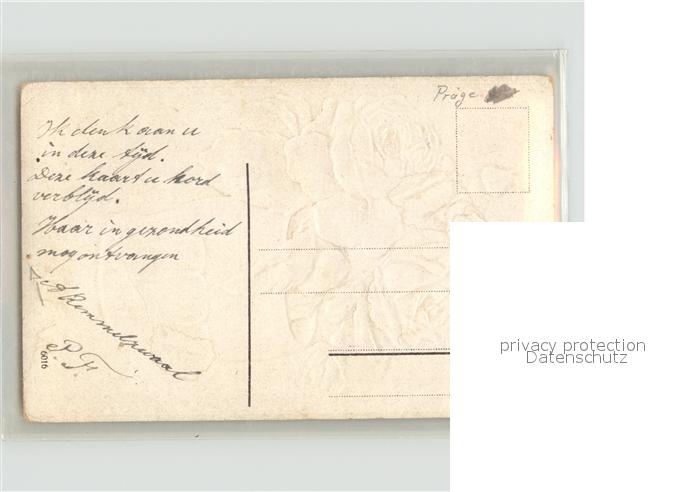 Präge
Ik denk aan u
in deze tijd.
Deze kaart u
verblijd.
Haar in gezondheid
mog ontvangen
P. F.
6016
privacy protection
Datenschutz